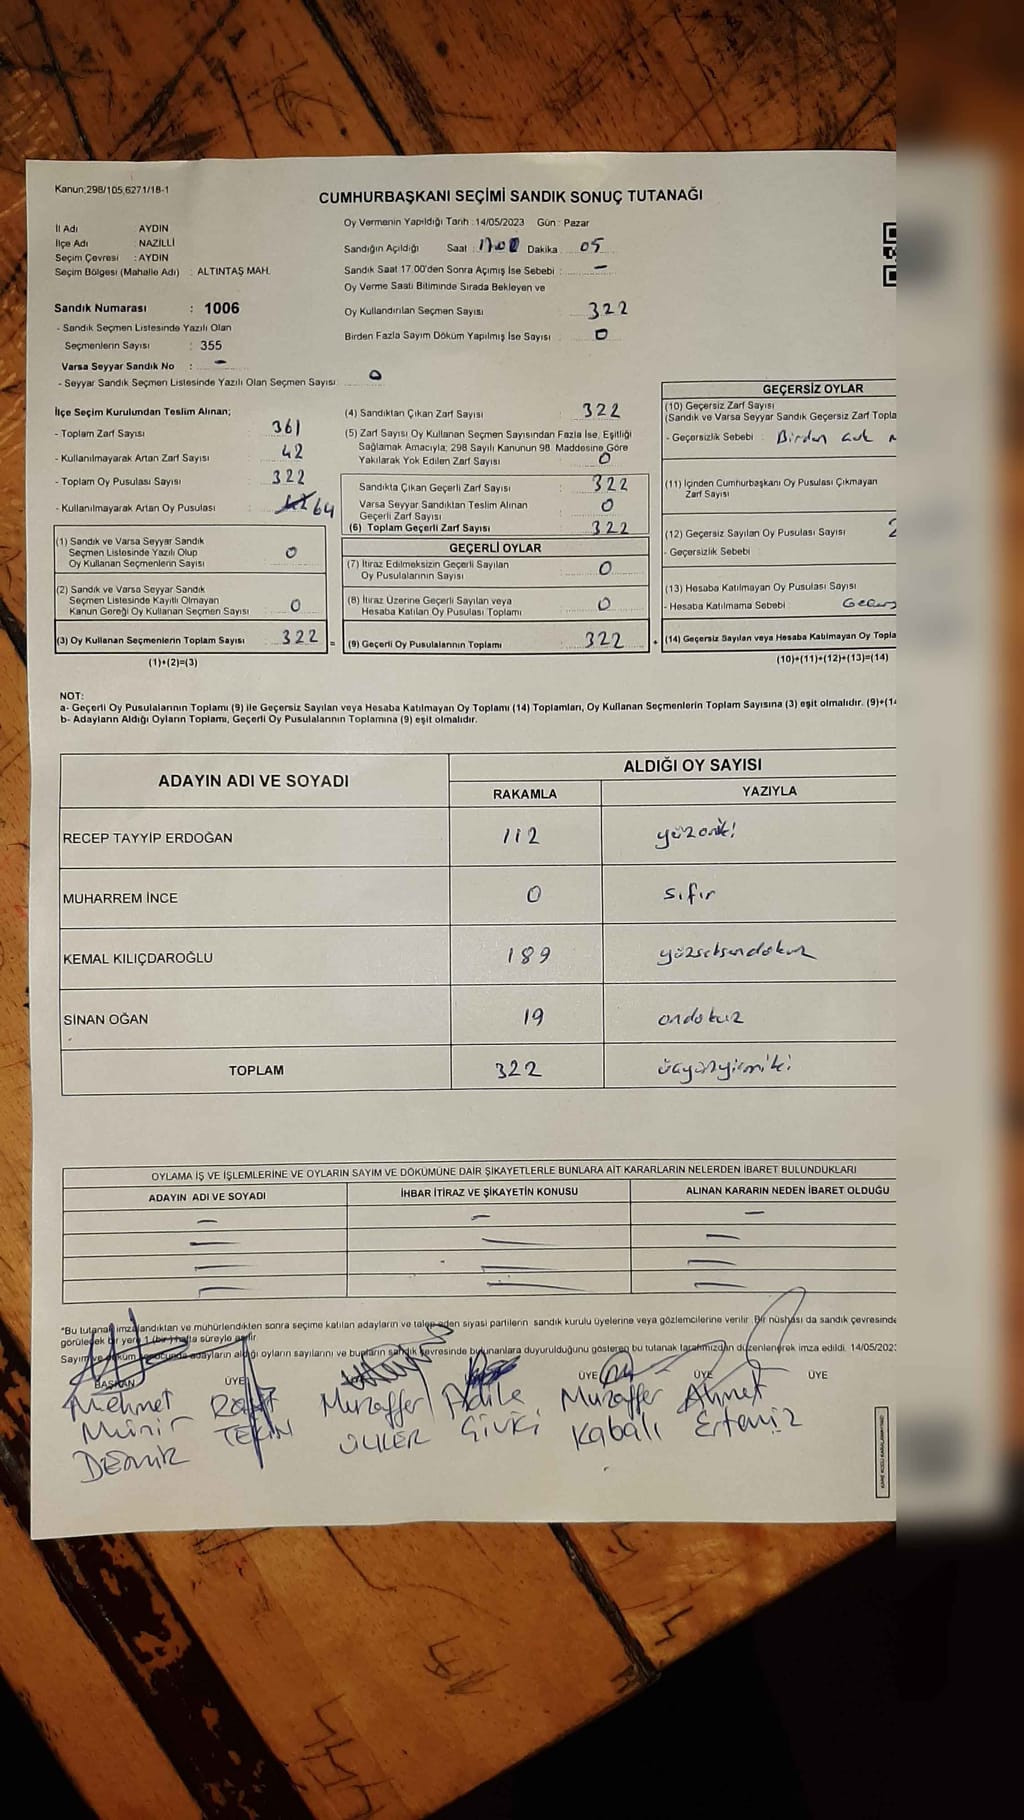 Kanun;298/105,6271/18-1
CUMHURBAŞKANI SEÇİMİ SANDIK SONUÇ TUTANAĞI
İl Adı AYDIN
İlçe Adı : NAZİLLİ
Seçim Çevresi : AYDIN
Seçim Bölgesi (Mahalle Adı) : ALTINTAŞ MAH.
Oy Vermenin Yapıldığı Tarih : 14/05/2023 Gün : Pazar
Sandığın Açıldığı Saat : 17:00 Dakika : 05
Sandık Saat 17.00'den Sonra Açımış İse Sebebi : -
Oy Verme Saati Bitiminde Sırada Bekleyen ve
Oy Kullandırılan Seçmen Sayısı 322
Birden Fazla Sayım Döküm Yapılmış İse Sayısı 0
Sandık Numarası : 1006
- Sandık Seçmen Listesinde Yazılı Olan
Seçmenlerin Sayısı : 355
Varsa Seyyar Sandık No : -
- Seyyar Sandık Seçmen Listesinde Yazılı Olan Seçmen Sayısı: 0
İlçe Seçim Kurulundan Teslim Alınan;
- Toplam Zarf Sayısı 361
- Kullanılmayarak Artan Zarf Sayısı 42
- Toplam Oy Pusulası Sayısı 322
- Kullanılmayarak Artan Oy Pusulası 64
(1) Sandık ve Varsa Seyyar Sandık
Seçmen Listesinde Yazılı Olup
Oy Kullanan Seçmenlerin Sayısı 0
(2) Sandık ve Varsa Seyyar Sandık
Seçmen Listesinde Kayıtlı Olmayan
Kanun Gereği Oy Kullanan Seçmen Sayısı 0
(3) Oy Kullanan Seçmenlerin Toplam Sayısı 322 =
(1)+(2)=(3)
(4) Sandıktan Çıkan Zarf Sayısı : 322
(5) Zarf Sayısı Oy Kullanan Seçmen Sayısından Fazla İse, Eşitliği
Sağlamak Amacıyla; 298 Sayılı Kanunun 98. Maddesine Göre
Yakılarak Yok Edilen Zarf Sayısı 0
Sandıkta Çıkan Geçerli Zarf Sayısı : 322
Varsa Seyyar Sandıktan Teslim Alınan
Geçerli Zarf Sayısı 0
(6) Toplam Geçerli Zarf Sayısı 322
GEÇERLİ OYLAR
(7) İtiraz Edilmeksizin Geçerli Sayılan
Oy Pusulalarının Sayısı 0
(8) İtiraz Üzerine Geçerli Sayılan veya
Hesaba Katılan Oy Pusulası Toplamı 0
(9) Geçerli Oy Pusulalarının Toplamı 322 +
GEÇERSİZ OYLAR
(10) Geçersiz Zarf Sayısı
(Sandık ve Varsa Seyyar Sandık Geçersiz Zarf Topla
- Geçersizlik Sebebi : Birden
(11) İçinden Cumhurbaşkanı Oy Pusulası Çıkmayan
Zarf Sayısı
(12) Geçersiz Sayılan Oy Pusulası Sayısı
- Geçersizlik Sebebi
(13) Hesaba Katılmayan Oy Pusulası Sayısı
- Hesaba Katılmama Sebebi
(14) Geçersiz Sayılan veya Hesaba Katılmayan Oy Topla
(10)+(11)+(12)+(13)=(14)
NOT:
a- Geçerli Oy Pusulalarının Toplamı (9) ile Geçersiz Sayılan veya Hesaba Katılmayan Oy Toplamı (14) Toplamları, Oy Kullanan Seçmenlerin Toplam Sayısına (3) eşit olmalıdır. (9)+(14
b- Adayların Aldığı Oyların Toplamı, Geçerli Oy Pusulalarının Toplamına (9) eşit olmalıdır.
ADAYIN ADI VE SOYADI
ALDIĞI OY SAYISI
RAKAMLA YAZIYLA
RECEP TAYYİP ERDOĞAN 112 yüzoniki
MUHARREM İNCE 0 sıfır
KEMAL KILIÇDAROĞLU 189 yüzseksendokuz
SİNAN OĞAN 19 ondokuz
TOPLAM 322 üçyüzyirmiiki
OYLAMA İŞ VE İŞLEMLERİNE VE OYLARIN SAYIM VE DÖKÜMÜNE DAİR ŞİKAYETLERLE BUNLARA AİT KARARLARIN NELERDEN İBARET BULUNDUKLARI
ADAYIN ADI VE SOYADI İHBAR İTİRAZ VE ŞİKAYETİN KONUSU ALINAN KARARIN NEDEN İBARET OLDUĞU
- - -
- - -
- - -
- - -
*Bu tutanak imzalandıktan ve mühürlendikten sonra seçime katılan adayların ve talep eden siyasi partilerin sandık kurulu üyelerine veya gözlemcilerine verilir. Bir nüshası da sandık çevresinde
görülecek bir yere 1 (bir) hafta süreyle asılır.
Sayım ve döküm sonucunda adayların aldığı oyların sayılarını ve bunların sandık çevresinde bulunanlara duyurulduğunu gösteren bu tutanak tarafımızdan düzenlenerek imza edildi. 14/05/2023
BAŞKAN ÜYE ÜYE ÜYE ÜYE
Mehmet Münir DEMİR
TEKİN
Muzaffer ÜLKER
Adile
Muzaffer Kabalı
Ahmet Ertemiz